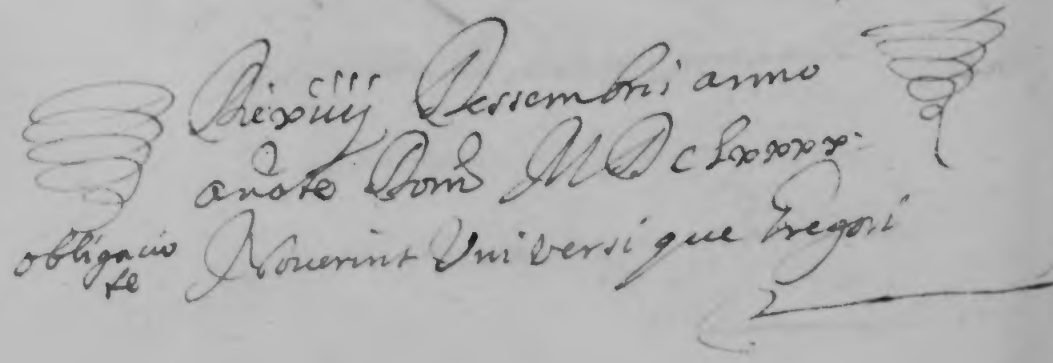 Die xviiij Dessembris anno
a nate Dom M D C Lxxxx
obligacio
te
Noverint Universi que Gregori